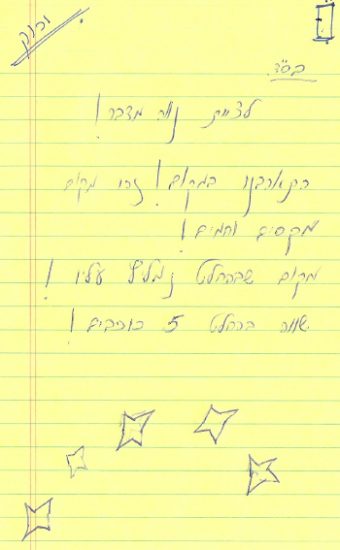 בס"ד
לצוות נווה מדבר!
התארחנו במקום! זהו מקום
מקסים וחמים!
מקום שבהחלט נמליץ עליו!
שווה בהחלט 5 כוכבים!